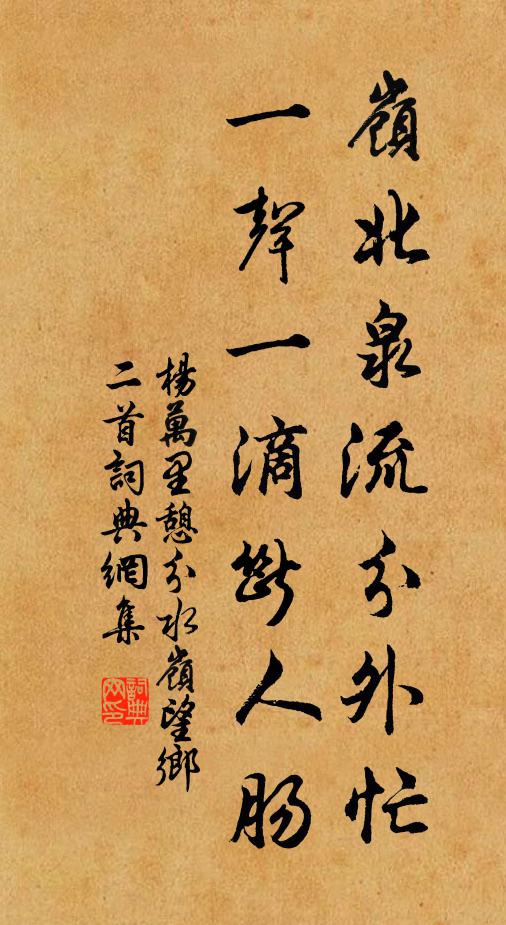 嶺北泉流分外忙
一聲一滴斷人腸
楊萬里憩分水嶺望鄉
二首詞典網集
詞典
網印